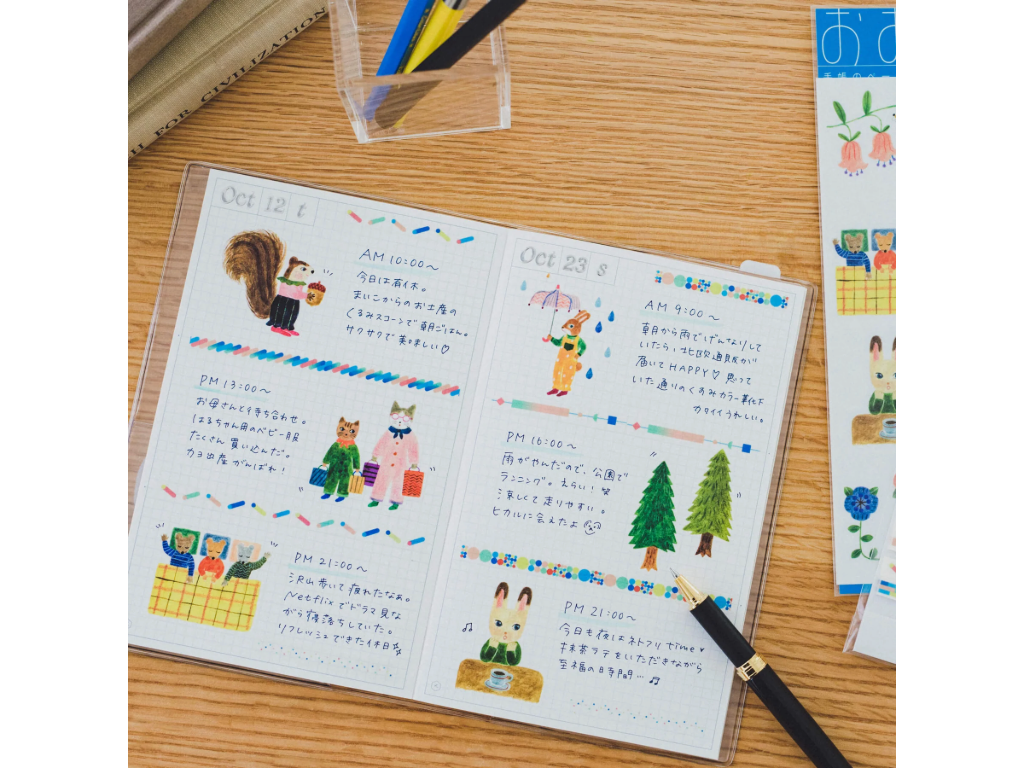 H FOR CIVILIZATION
おお
手帳のペー
Oct 12 t
AM 10:00～
今日は有休。
まいこからのお土産の
くるみスコーンで朝ごはん。
サクサクで美味しい♡
PM 13:00～
お母さんと待ち合わせ。
はるちゃん用のベビー服
たくさん買い込んだ。
カヨ出産がんばれ!
PM 21:00～
沢山歩いて疲れたなぁ。
Netflixでドラマ見な
がら寝落ちしていた。
リフレッシュできた休日
Oct 23 s
AM 9:00～
朝から雨でげんなりして
いたら、北欧通販が
届いてHAPPY♡ 思って
いた通りのくすみカラー靴下
カワイイうれしい。
PM 16:00～
雨がやんだので、公園で
ランニング。えらい!
涼しくて走りやすい。
ヒカルに会えたよ
PM 21:00～
今日も夜はネトフリtime♥
抹茶ラテをいただきながら
至福の時間…♫